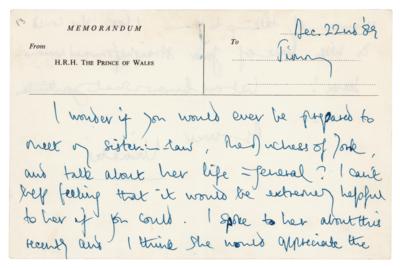 13
MEMORANDUM
From
H.R.H. THE PRINCE OF WALES
To
Dec. 22nd '89
Jimmy
I wonder if you would ever be prepared to
meet my sister-in-law, the Duchess of York,
and talk about her life in general? I can't
help feeling that it would be extremely helpful
to her if you could. I spoke to her about this
recently and I think she would appreciate the